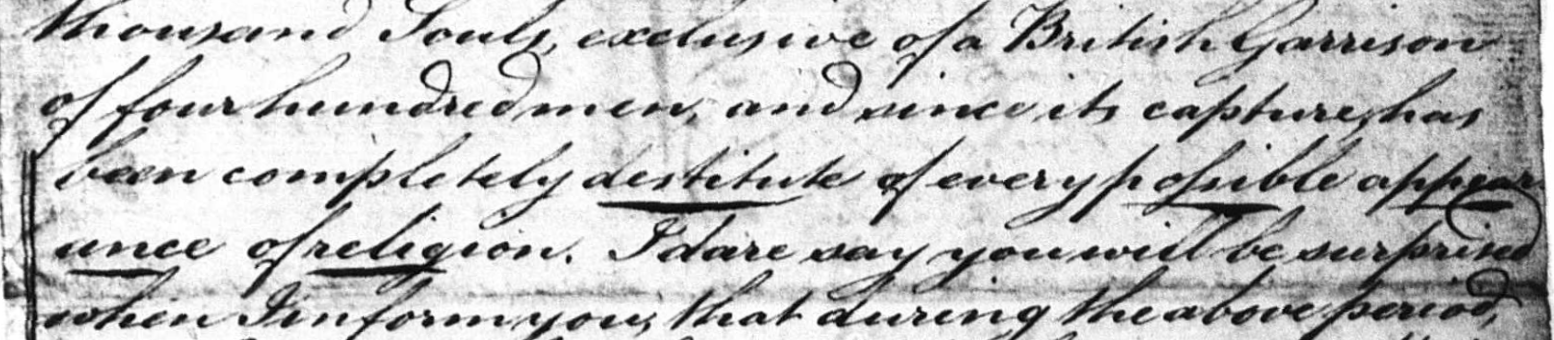 thousand Souls, exclusive of a British Garrison
of four hundred men, and since its capture, has
been completely destitute of every possible appear
ance of religion. I dare say you will be surprised
when I inform you, that during the above period,